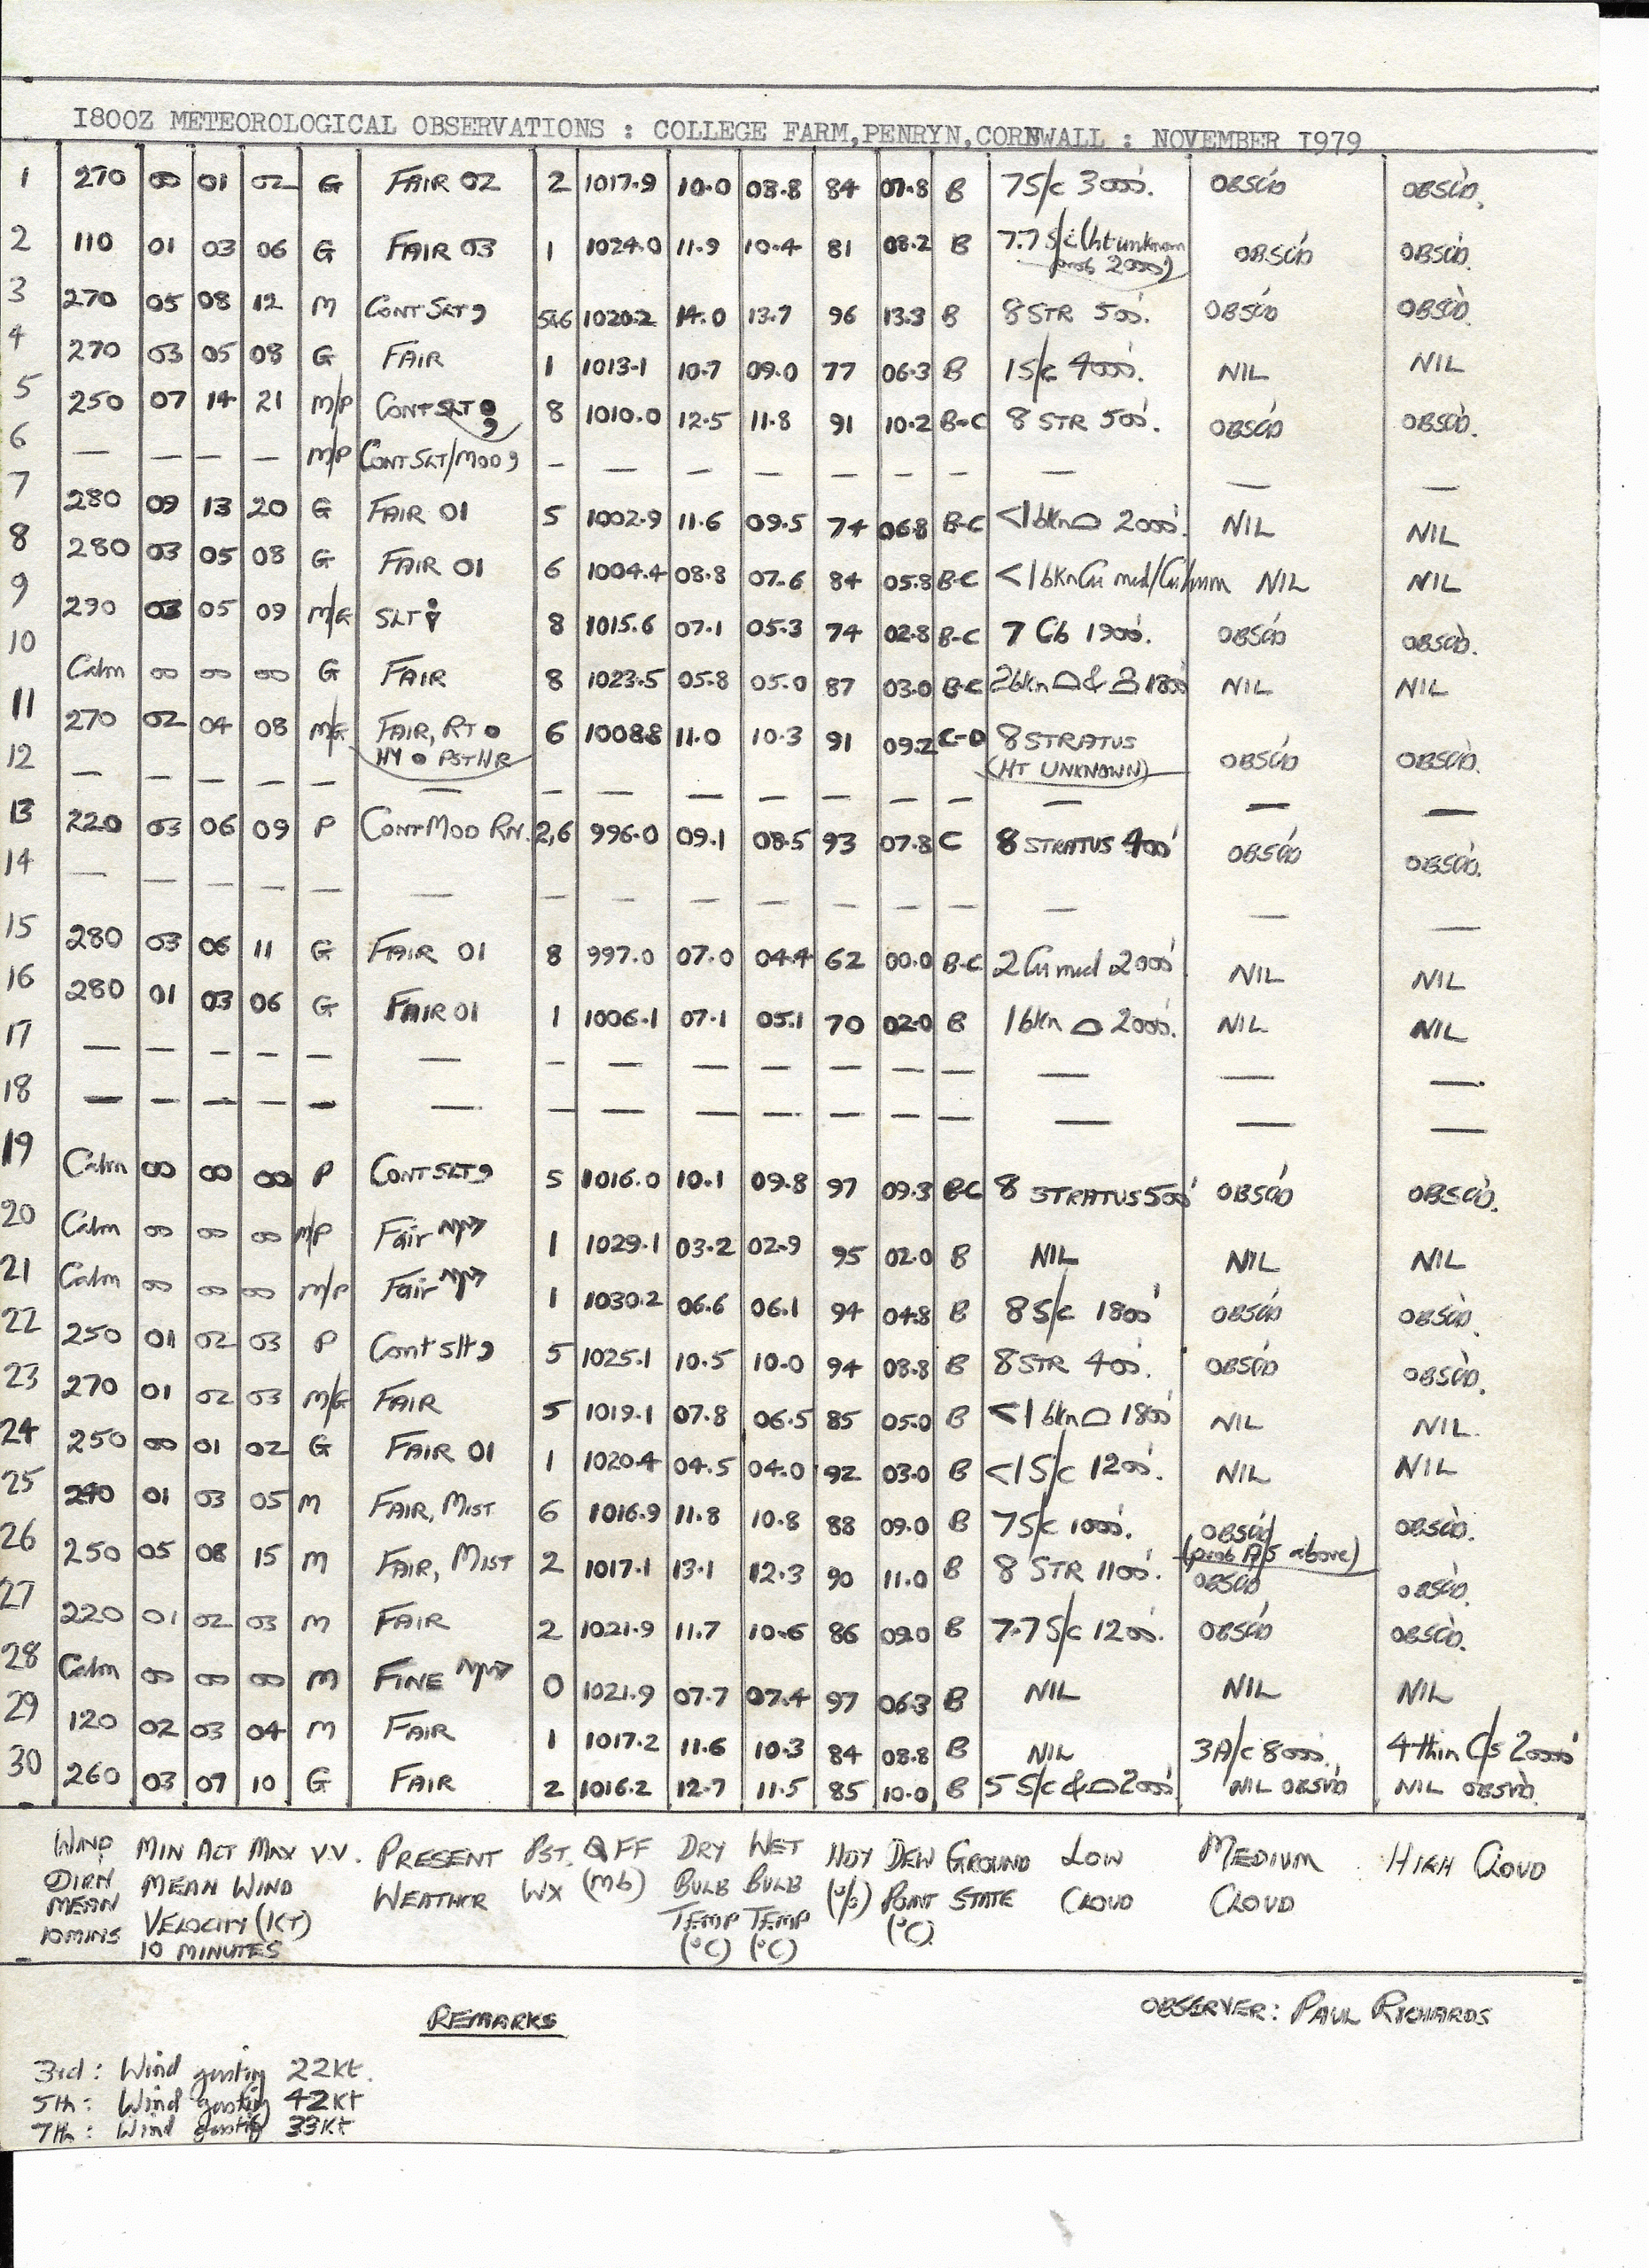 1800Z METEOROLOGICAL OBSERVATIONS : COLLEGE FARM,PENRYN,CORNWALL : NOVEMBER 1979
1 270 00 01 02 G FAIR 02 2 1017.9 10.0 08.8 84 07.8 B 7S/c 3000'. OBSC'D OBSC'D.
2 110 01 03 06 G FAIR 03 1 1024.0 11.9 10.4 81 08.2 B 7.7 S/c (ht unknown OBSC'D OBSC'D.
prob 2000')
3 270 05 08 12 M CONT SLT , 5&6 1020.2 14.0 13.7 96 13.3 B 8 STR 500'. OBSC'D OBSC'D.
4 270 03 05 08 G FAIR 1 1013.1 10.7 09.0 77 06.3 B 1S/c 4000'. NIL NIL
5 250 07 14 21 M/P CONT SLT ● , 8 1010.0 12.5 11.8 91 10.2 B-C 8 STR 500'. OBSC'D OBSC'D.
6 — — — — M/P CONT SLT/MOD , — — — — — — — — — —
7 280 09 13 20 G FAIR 01 5 1002.9 11.6 09.5 74 06.8 B-C <1 bkn ⌓ 2000'. NIL NIL
8 280 03 05 08 G FAIR 01 6 1004.4 08.8 07.6 84 05.8 B-C <1 bkn Cu med/Cu hum NIL NIL
9 290 03 05 09 M/G SLT 8 1015.6 07.1 05.3 74 02.8 B-C 7 Cb 1900'. OBSC'D OBSC'D.
10 Calm 00 00 00 G FAIR 8 1023.5 05.8 05.0 87 03.0 B-C 2bkn ⌓ & 1800' NIL NIL
11 270 02 04 08 M/G FAIR, RT ● 6 1008.8 11.0 10.3 91 09.2 C-D 8 STRATUS OBSC'D OBSC'D.
HY ● PST HR (HT UNKNOWN)
12 — — — — — — — — — — — — — — — —
13 220 03 06 09 P CONT MOD RN. 2,6 996.0 09.1 08.5 93 07.8 C 8 STRATUS 400' OBSC'D OBSC'D.
14 — — — — — — — — — — — — — — —
15 280 03 06 11 G FAIR 01 8 997.0 07.0 04.4 62 00.0 B-C 2 Cu med 2000' NIL NIL
16 280 01 03 06 G FAIR 01 1 1006.1 07.1 05.1 70 02.0 B 1bkn ⌓ 2000'. NIL NIL
17 — — — — — — — — — — — — — — — —
18 — — — — — — — — — — — — — — — —
19 Calm 00 00 00 P CONT SLT , 5 1016.0 10.1 09.8 97 09.3 B-C 8 STRATUS 500' OBSC'D OBSC'D.
20 Calm 00 00 00 M/P Fair 1 1029.1 03.2 02.9 95 02.0 B NIL NIL NIL
21 Calm 00 00 00 M/P Fair 1 1030.2 06.6 06.1 94 04.8 B 8 S/c 1800' OBSC'D OBSC'D.
22 250 01 02 03 P Cont slt , 5 1025.1 10.5 10.0 94 08.8 B 8 STR 400'. OBSC'D OBSC'D.
23 270 01 02 03 M/G FAIR 5 1019.1 07.8 06.5 85 05.0 B <1 bkn ⌓ 1800' NIL NIL.
24 250 00 01 02 G FAIR 01 1 1020.4 04.5 04.0 92 03.0 B <1 S/c 1200'. NIL NIL
25 01 03 05 M FAIR, MIST 6 1016.9 11.8 10.8 88 09.0 B 7S/c 1000'. OBSC'D OBSC'D.
(prob A/S above)
26 250 05 08 15 M FAIR, MIST 2 1017.1 13.1 12.3 90 11.0 B 8 STR 1100'. OBSC'D OBSC'D.
27 220 01 02 03 M FAIR 2 1021.9 11.7 10.6 86 09.0 B 7.7 S/c 1200'. OBSC'D OBSC'D.
28 Calm 00 00 00 M FINE 0 1021.9 07.7 07.4 97 06.3 B NIL NIL NIL
29 120 02 03 04 M FAIR 1 1017.2 11.6 10.3 84 08.8 B NIL 3A/c 8000'. 4 thin C/s 20000'
30 260 03 07 10 G FAIR 2 1016.2 12.7 11.5 85 10.0 B 5 S/c & ⌓ 2000' NIL OBSV'D NIL OBSV'D.
WIND MIN ACT MAX V.V. PRESENT PST. QFF DRY WET HDY DEW GROUND LOW MEDIUM HIGH CLOUD
DIRN MEAN WIND WEATHER WX (mb) BULB BULB (%) POINT STATE CLOUD CLOUD
MEAN VELOCITY (KT) TEMP TEMP (°C)
10MINS 10 MINUTES (°C) (°C)
REMARKS
OBSERVER: PAUL RICHARDS
3rd: Wind gusting 22kt.
5th: Wind gusting 42kt
7th: Wind gusting 33kt